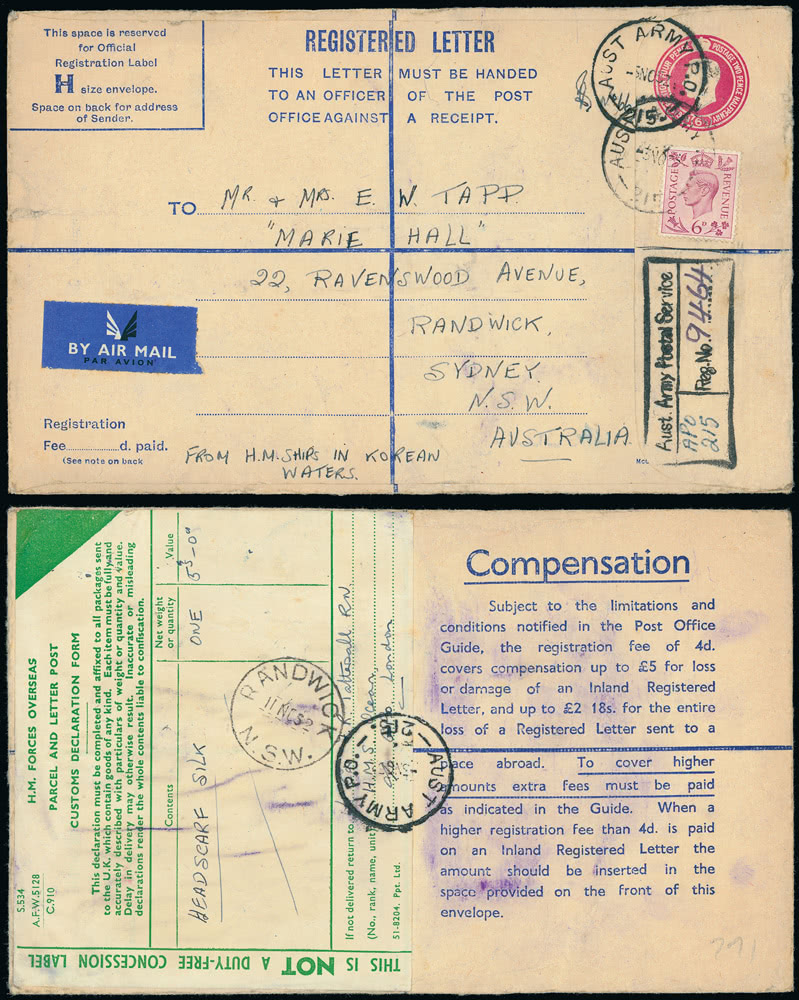 This space is reserved
for Official
Registration Label
H size envelope.
Space on back for address
of Sender.
REGISTERED LETTER
THIS LETTER MUST BE HANDED
TO AN OFFICER OF THE POST
OFFICE AGAINST A RECEIPT.
AUST ARMY P.O.
215
AUST
215
POSTAGE TWO PENCE HALFPENNY
POSTAGE REVENUE
6D
TO MR. & MRS. E. W. TAPP
"MARIE HALL"
22, RAVENSWOOD AVENUE,
RANDWICK,
SYDNEY.
N.S.W.
AUSTRALIA.
BY AIR MAIL
PAR AVION
Registration
Fee............d. paid.
(See note on back
FROM H.M. SHIPS IN KOREAN
WATERS.
Aust. Army Postal Service
APO
215
Reg. No. 9464
S.534
A.F.W.5128
C.910
H.M. FORCES OVERSEAS
PARCEL AND LETTER POST
CUSTOMS DECLARATION FORM
This declaration must be completed and affixed to all packages sent
to the U.K. which contain goods of any kind. Each item must be fully and
accurately described with particulars of weight or quantity and value.
Delay in delivery may otherwise result. Inaccurate or misleading
declarations render the whole contents liable to confiscation.
Contents
Net weight
or quantity
Value
HEADSCARF SILK
ONE
If not delivered return to
(No., rank, name, unit
R.N.
H.M.S. Ocean,
London
51-8204. Ppt. Ltd.
THIS IS NOT A DUTY-FREE CONCESSION LABEL
RANDWICK
11 NO 52
N.S.W.
AUST ARMY P.O.
Compensation
Subject to the limitations and
conditions notified in the Post Office
Guide, the registration fee of 4d.
covers compensation up to £5 for loss
or damage of an Inland Registered
Letter, and up to £2 18s. for the entire
loss of a Registered Letter sent to a
place abroad. To cover higher
amounts extra fees must be paid
as indicated in the Guide. When a
higher registration fee than 4d. is paid
on an Inland Registered Letter the
amount should be inserted in the
space provided on the front of this
envelope.